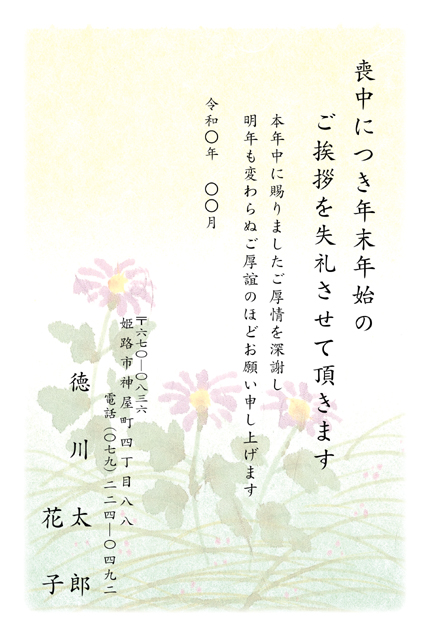 喪中につき年末年始の
ご挨拶を失礼させて頂きます
本年中に賜りましたご厚情を深謝し
明年も変わらぬご厚誼のほどお願い申し上げます
令和〇年 〇〇月
〒六七〇―〇八三六
姫路市神屋町四丁目八八
電話(〇七九)二二四―〇四九二
徳川 太郎
花子